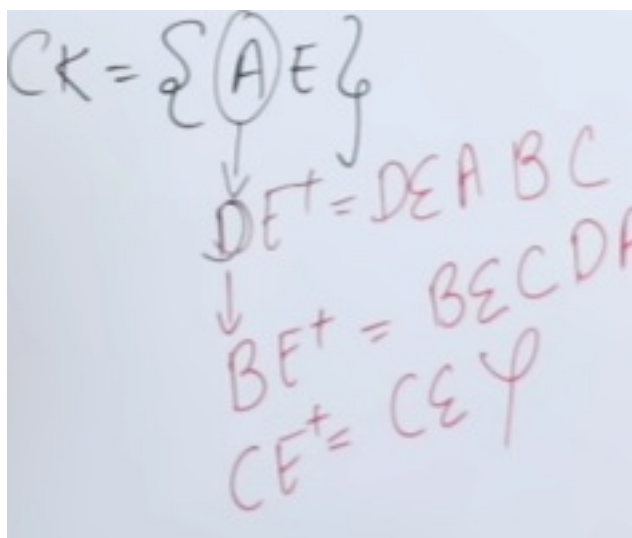 CK = {A E}
DE⁺ = DEABC
BE⁺ = BECDA
CE⁺ = CEφ